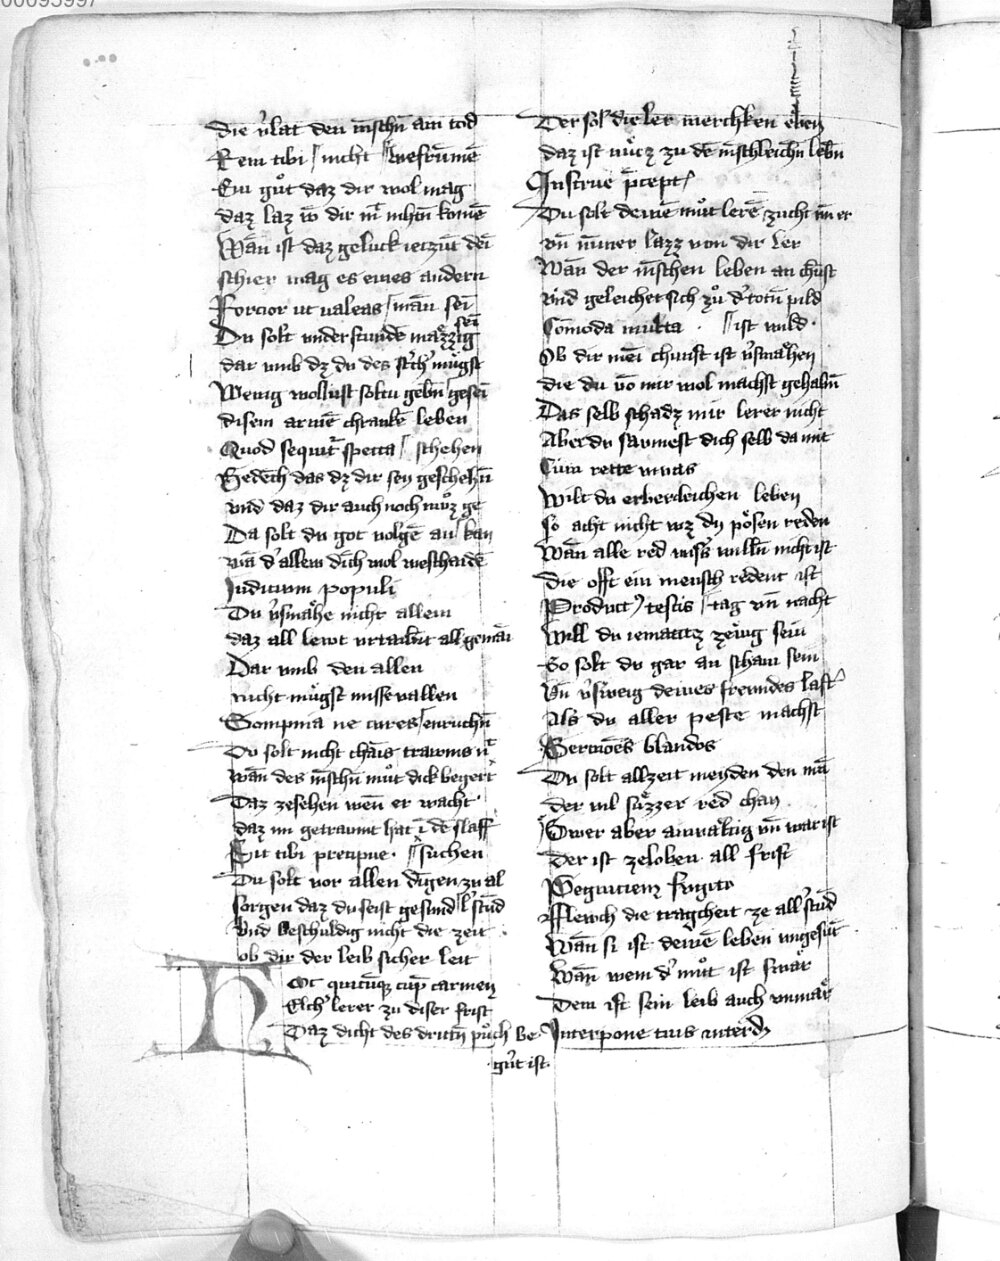 00093997
die v̓lat den mēschn̄ am tod
Rem tibi / nicht // wefrūmē
Ein gůt daz dir wol mag
daz laz vō dir nit mchō̄n komē
Wān ist daz geluck ieczūt dei̅
schier mag es eines andern
Forcior ut ualeas / man̄ sei̅
Du solt vnderstundē mäzzig sei̅
dar vmb dz du des st̓ch̓ mu̇gst
Wenig wollust soltu gebn̄ / gesei̅
disem armē chrankē leben
Quod sequit̓ specta / schehen
Gedēch das dz dir sey geschehn̄
vnd daz dir auch noch můz ge
Da solt du got volgē an / kan
wā d̓ allew dich wol weschaidē
Judicium populi
Du v̓smähe nicht allein
daz all lewt vrtailnt all gemāi
Dar vmb den allen
nicht mügst misse vallen
Sompnia ne cures / enruchn̄
Du solt nicht chāis trawms n̄
Wān des mēschn̄ můt dick begert
Daz zesehen wen̄ er wacht
daz im getraumt hat ī dē slaff
Sit tibi precipue // suchen
Du solt vor allen dingen zu al
sorgen daz du seist gesund / l̓ stūd
Vnd beschuldig nicht die zeit
ob dir der leib sicher leit
Hoc quicūq̄ cup̄ carmen
Elch̓ lerer zu diser frist
Daz dicht des drittn̄ půch be
gůt ist
Der sol die ler merchken eben
daz ist nu̇cz zu dē mēschleichn̄ lebn̄
Instrue p̄cept
Du solt deinē můt lerē zucht vn̄ er
vn̄ nim̄er lazz von dir ler
Wān der mēschen leben an chu̇st
Vnd geleichet sich zů d̓ totn̄ pild
Com̄oda multa // ist wild
Ob dir mei̅ chunst ist v̓smähen
die du vō mir wol machst gehabn̄
Das selb schadz mir lerer nicht
Aber du saumest dich selb da mit
Cum recte viuas
Wilt du erberleichen leben
so acht nicht wz dy pösen reden
Wān alle red muss willn̄ nicht ist
die offt ein mensch redent ist
Product̓ testis / tag vn̄ nacht
Will du iemantz zeu̇g sein
So solt du gar an scham sein
Vn̄ v̓sweig deines freundes last̓
Als du aller peste machst
Sermōes blandos
Du solt allzeit meyden den mā
der vil süzzer red chan
Swer aber ainvaltig vn̄ war ist
Der ist zeloben all frist
Segniciem fugito
Flewch die tragcheit ze all̓ stūd
Wān si ist deinē leben vngesūt
Wān wem d̓ můt ist swär
Dem ist sein leib auch vnmär
Interpone tuis interdū